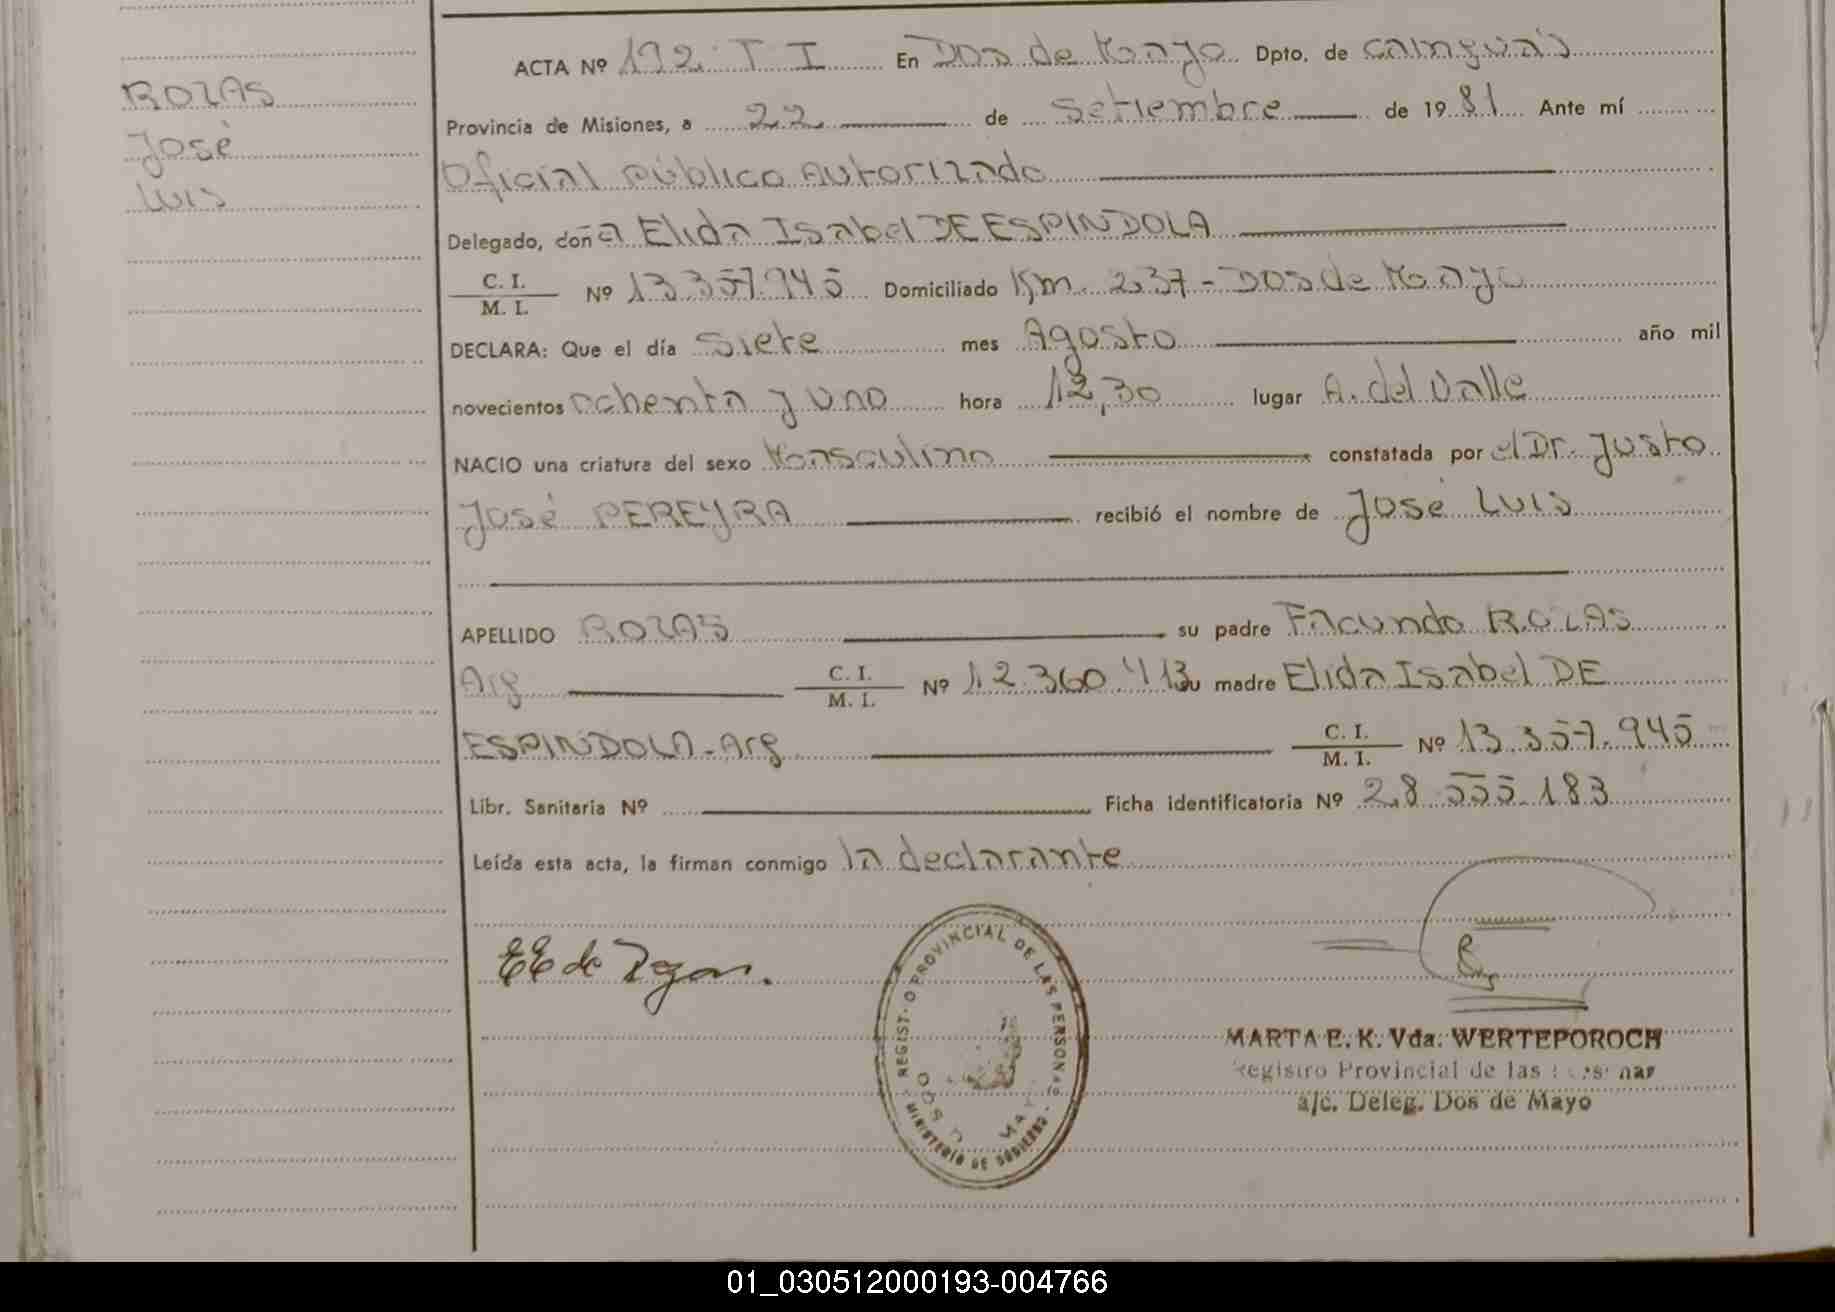 ROZAS
José
Luis
ACTA Nº 192. T I En Dos de Mayo Dpto. de Cainguás
Provincia de Misiones, a 22 de Setiembre de 1981 Ante mí
Oficial Público Autorizado
Delegado, doña Elida Isabel DE ESPINDOLA
C. I.
M. I. Nº 13.357.945 Domiciliado Km. 237 - Dos de Mayo
DECLARA: Que el día Siete mes Agosto año mil
novecientos ochenta y uno hora 12,30 lugar A. del Valle
NACIO una criatura del sexo Masculino constatada por el Dr. Justo
José PEREYRA recibió el nombre de José Luis
APELLIDO ROZAS su padre Facundo ROZAS
Arg C. I.
M. I. Nº 12.360.413 su madre Elida Isabel DE
ESPINDOLA - Arg C. I.
M. I. Nº 13.357.945
Libr. Sanitaria Nº Ficha identificatoria Nº 28.555.183
Leída esta acta, la firman conmigo la declarante
EE de
REGISTRO PROVINCIAL DE LAS PERSONAS
DOS D MAY
MINISTERIO DE GOBIERNO
MARTA E. K. Vda. WERTEPOROCH
Registro Provincial de las Personas
a/c. Deleg. Dos de Mayo
01_030512000193-004766